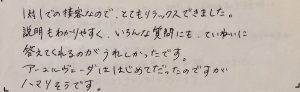 1対1での接客なので、とてもリラックスできました。
説明もわかりやすく、いろんな質問にも、ていねいに
答えてくれるのがうれしかったです。
アーユルヴェーダははじめてだったのですが
ハマりそうです。